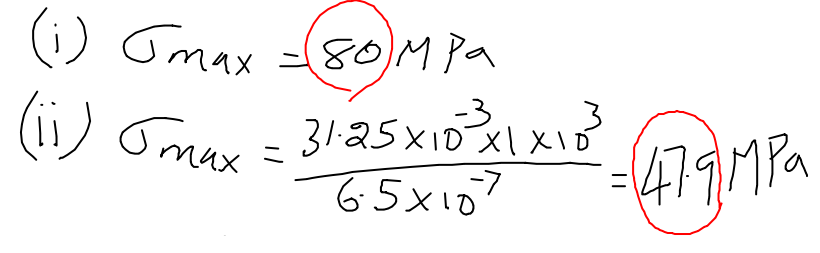 (i) σmax = 80 MPa
(ii) σmax = 31.25×10⁻³×1×10³ / 6.5×10⁻⁷ = 47.9 MPa